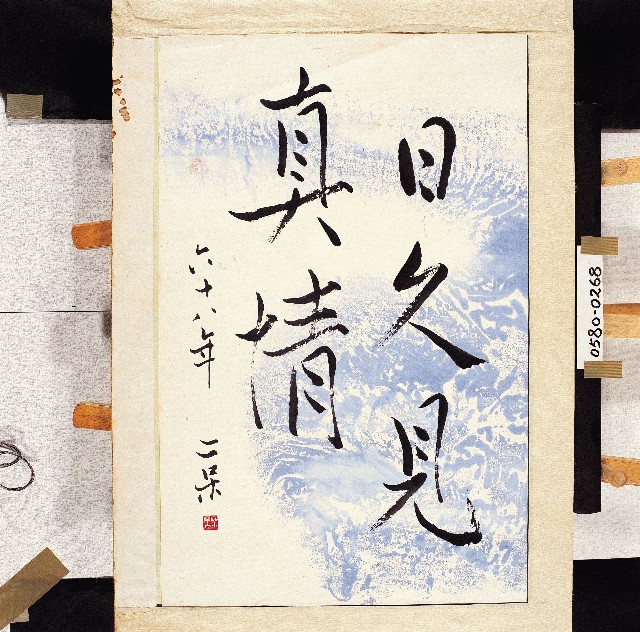 日久見
真情
六十八年
二呆
0580-0268